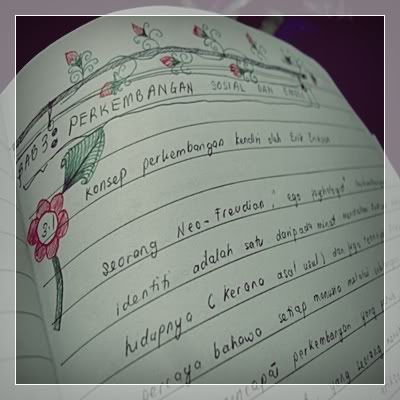 BAB 3:
PERKEMBANGAN SOSIAL DAN EMOSI
3.1
Konsep perkembangan kendiri oleh Erik Erikson
seorang Neo-Freudian, ego
identiti adalah satu daripada minat
hidupnya (kerana asal usul) dan juga
percaya bahawa setiap manusia melalui
mencapai perkembangan yang
yang seorang